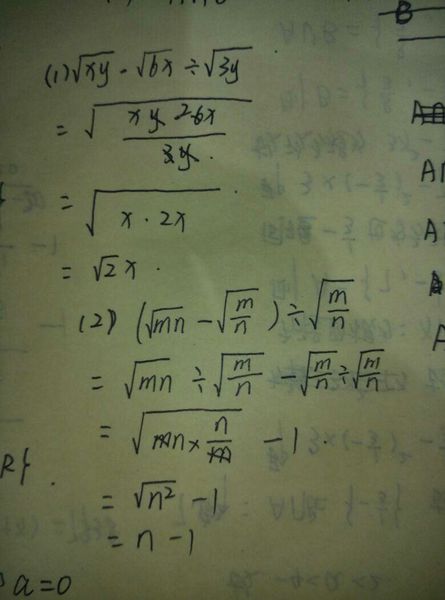 B
(1) √xy - √6x ÷ √3y
= √(xy · 2 6x / 3y) .
= √(x · 2x) .
= √2 x .
(2) (√mn - √(m/n)) ÷ √(m/n)
= √mn ÷ √(m/n) - √(m/n) ÷ √(m/n)
= √(mn × n/m) - 1 .
= √n² - 1
= n - 1
a = 0